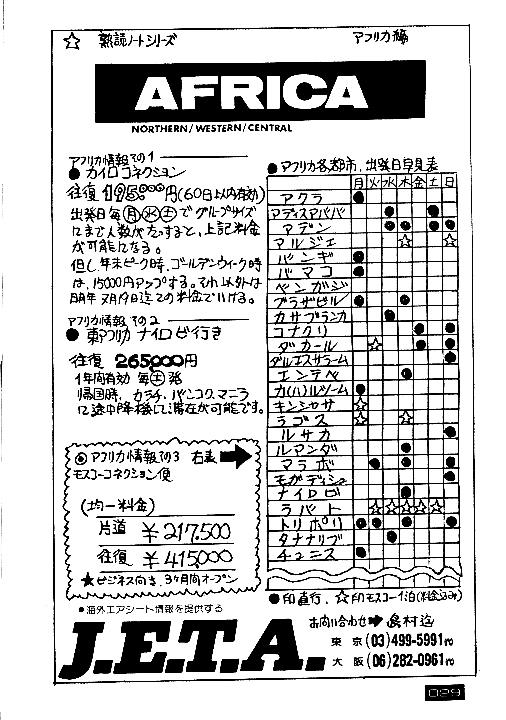 ☆ 熟読ノートシリーズ アフリカ編
AFRICA
NORTHERN/WESTERN/CENTRAL
アフリカ情報その1
● カイロコネクション
往復 195,000円(60日以内有効)
出発日毎(月)(火)(土)でグループサイズ
にまで人数がたっすると、上記料金
が可能になる。
但し、年末ピーク時、ゴールデンウィーク時
は、15000円アップする。それ以外は
明年 3月19日迄この料金でいける。
アフリカ情報その2
● 東アフリカ ナイロビ行き
往復 265,000円
1年間有効 毎(土)発
帰国時、カラチ、バンコク、マニラ
に途中降機して滞在が可能です。
◎ アフリカ情報その3 右表
モスコーコネクション便
(均一料金)
片道 ¥217,500
往復 ¥415,000
★ビジネス向き、3ヶ月間オープン
● アフリカ各都市、出発日早見表
月 火 水 木 金 土 日
アクラ
アディスアババ
アデン
アルジェ
バンギ
バマコ
ベンガジ
ブラザビル
カサブランカ
コナクリ
ダカール
ダルエスサラーム
エンテベ
カ(ハ)ルツーム
キンシャサ
ラゴス
ルサカ
ルアンダ
マラボ
モガディシュ
ナイロビ
ラバト
トリポリ
タナナリブ
チュニス
●印直行、☆印モスコー1泊(料金込み)
●海外エアシート情報を提供する
J.E.T.A.
お問い合わせ➡島村迄
東 京(03)499-5991㈹
大 阪(06)282-0961㈹
029